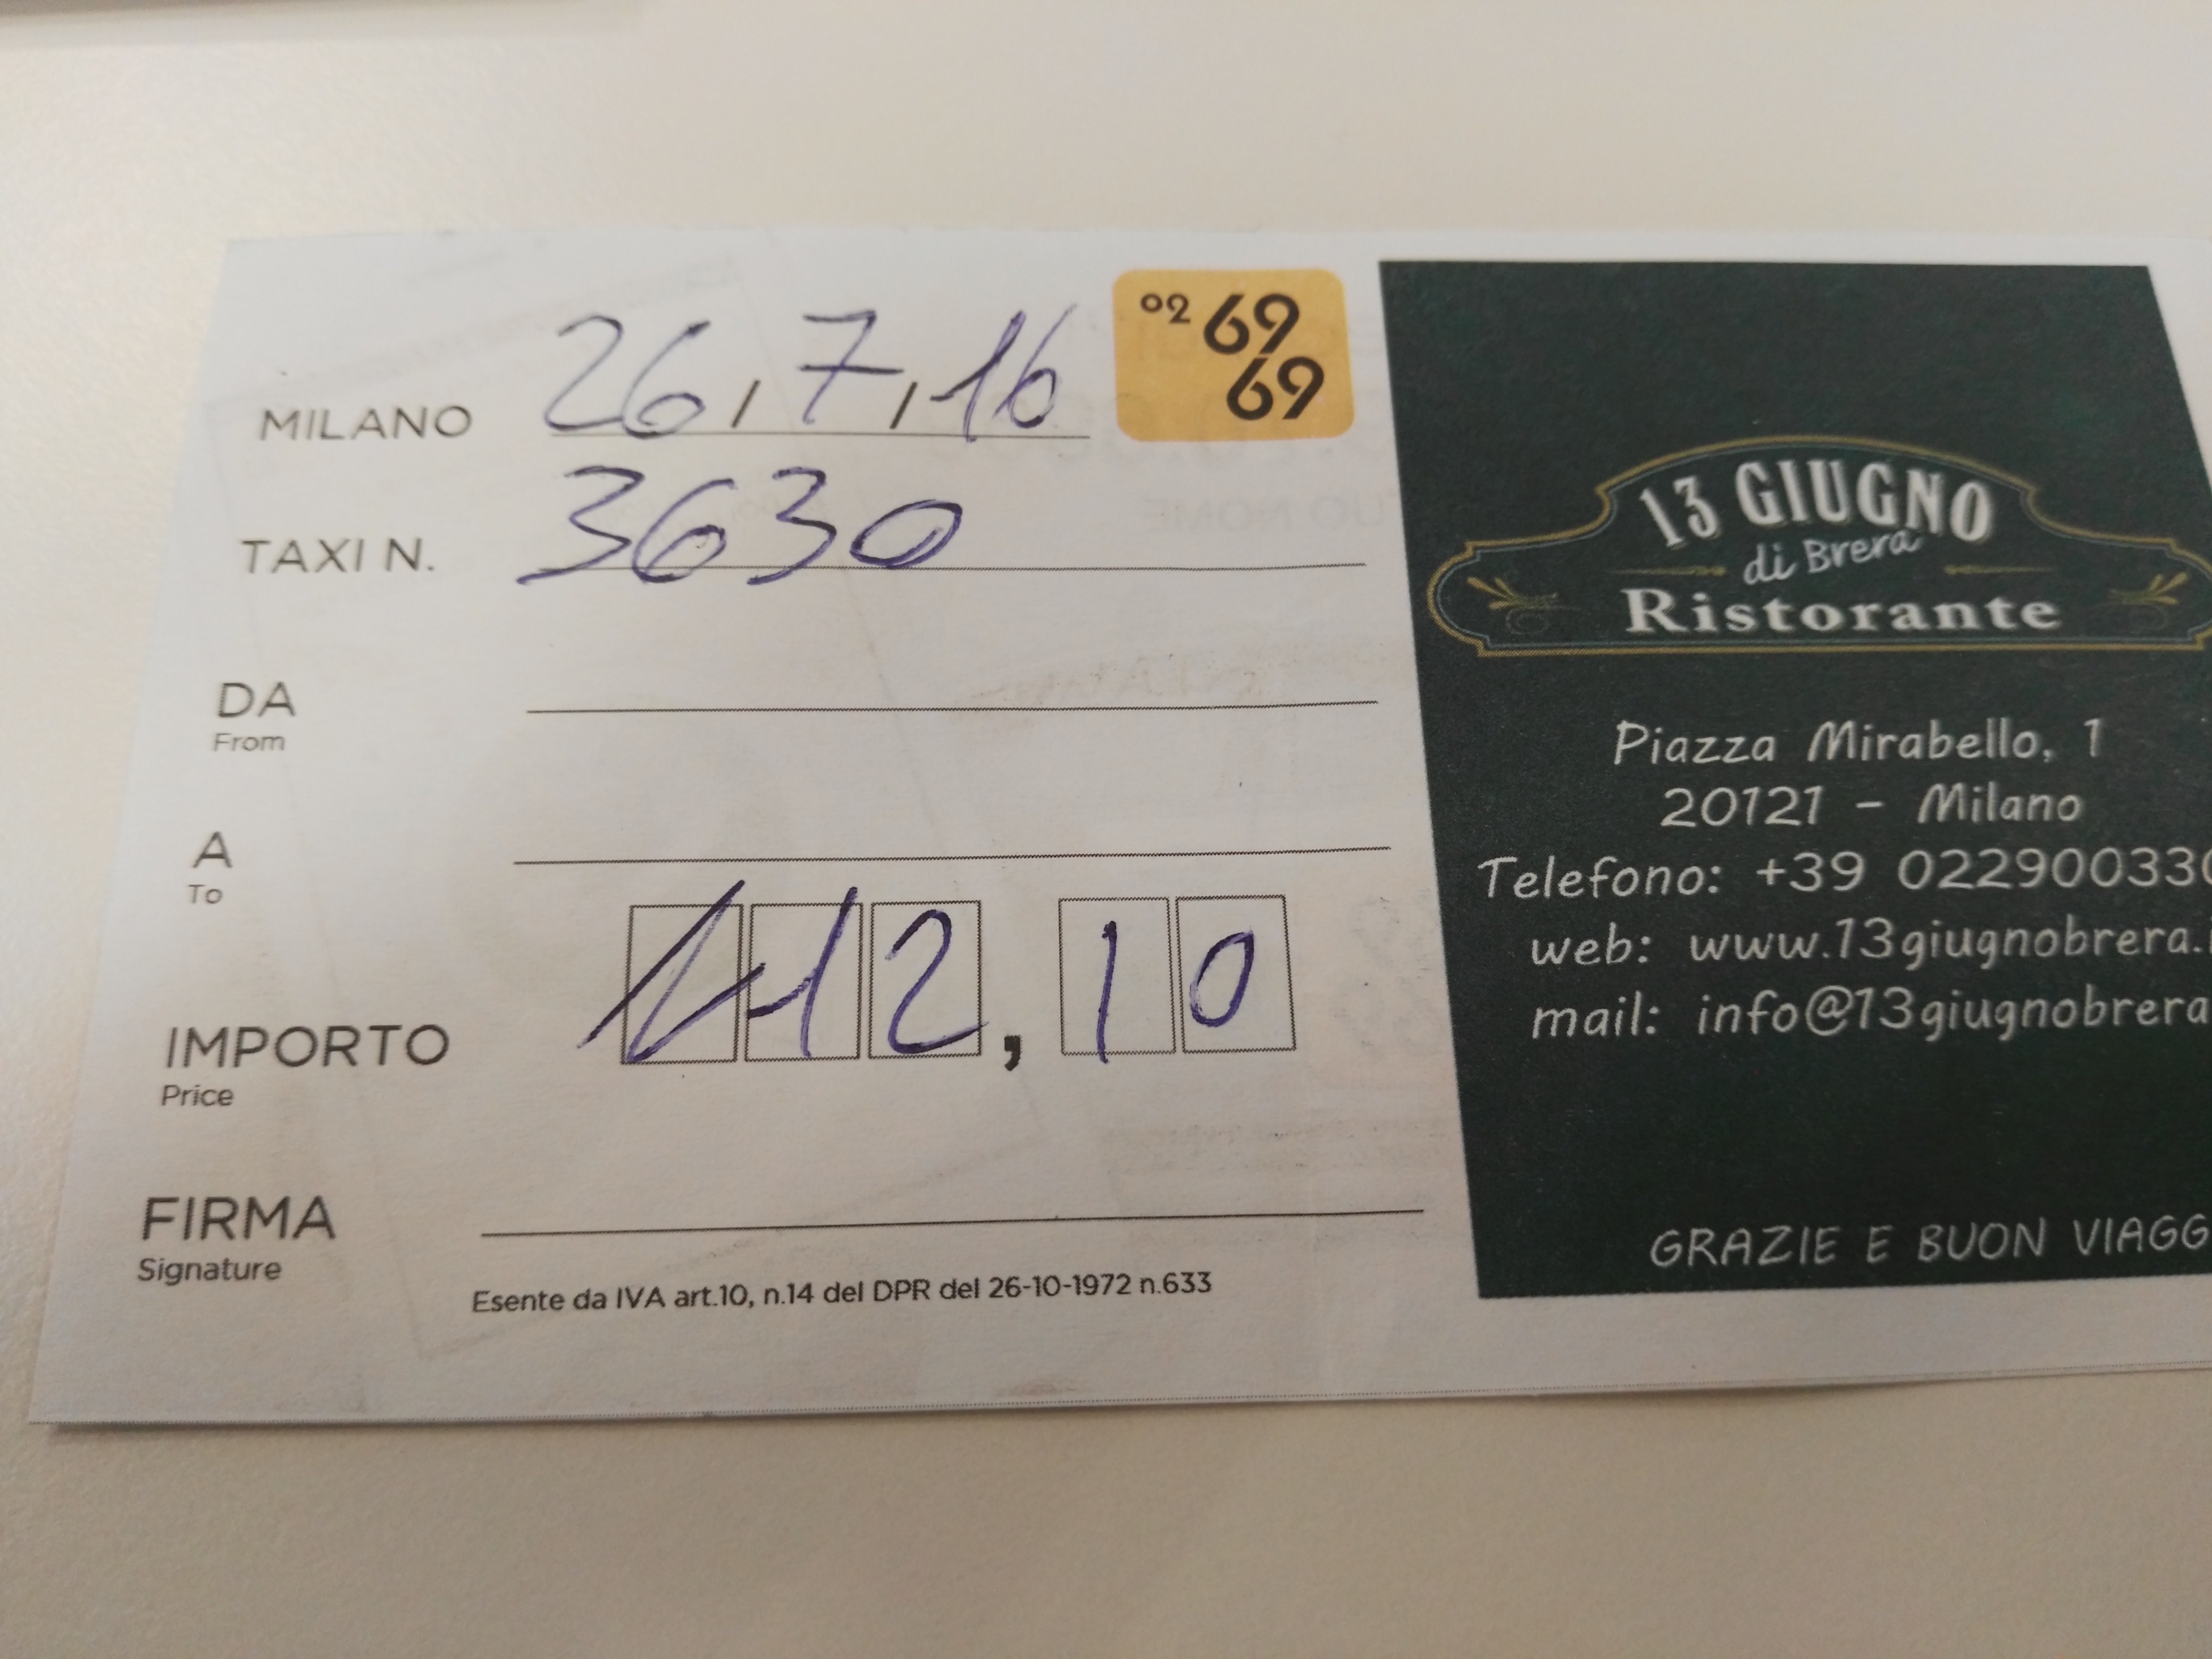 MILANO 26/7/16
02 69
69
TAXI N. 3630
DA
From
A
To
IMPORTO 12,10
Price
FIRMA
Signature
Esente da IVA art.10, n.14 del DPR del 26-10-1972 n.633
13 GIUGNO
di Brera
Ristorante
Piazza Mirabello, 1
20121 - Milano
Telefono: +39 022900330
web: www.13giugnobrera.
mail: info@13giugnobrera
GRAZIE E BUON VIAGG